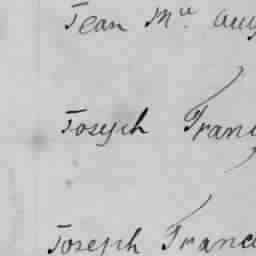 Jean M.le Aug
Joseph Franc
Joseph Franc